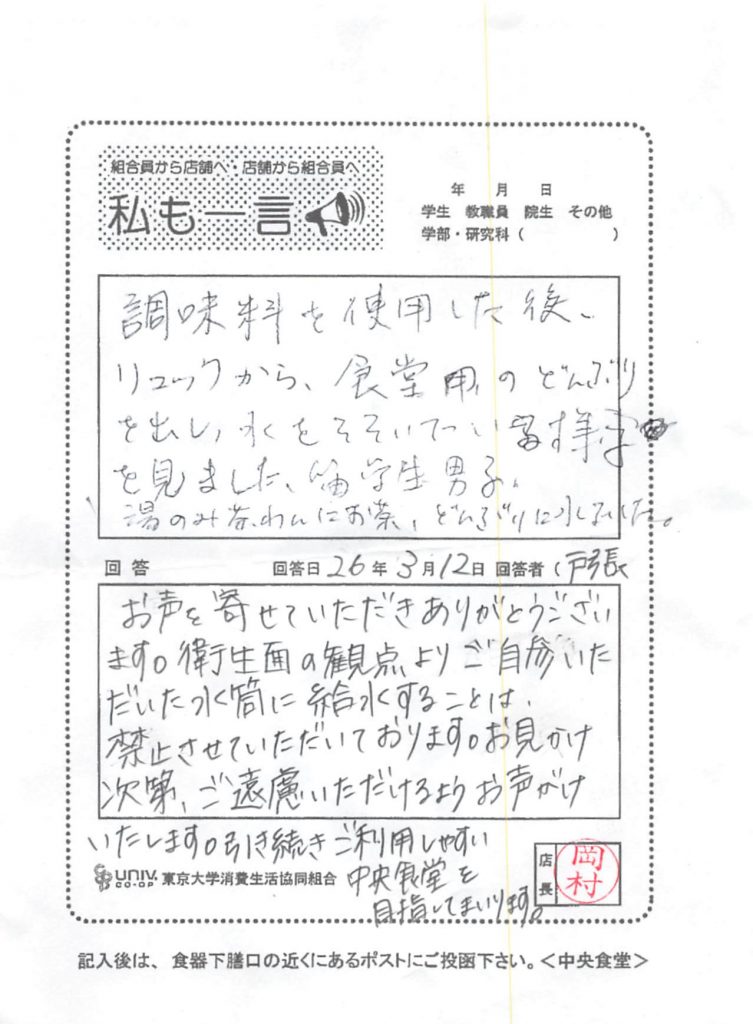 組合員から店舗へ・店舗から組合員へ
私も一言
年 月 日
学生 教職員 院生 その他
学部・研究科 ( )
調味料を使用した後、
リュックから、食堂用のどんぶり
を出し、水をそそいでいる様子
を見ました、留学生男子、
湯のみ茶わんにお茶、どんぶりに水でした。
回答 回答日 26年 3月12日 回答者 (戸張
お声を寄せていただきありがとうござい
ます。衛生面の観点よりご自参いた
だいた水筒に給水することは、
禁止させていただいております。お見かけ
次第、ご遠慮いただけるようお声がけ
いたします。引き続きご利用しやすい
中央食堂を
目指してまいります。
UNIV. CO-OP 東京大学消費生活協同組合
店長 岡村
記入後は、食器下膳口の近くにあるポストにご投函下さい。<中央食堂>